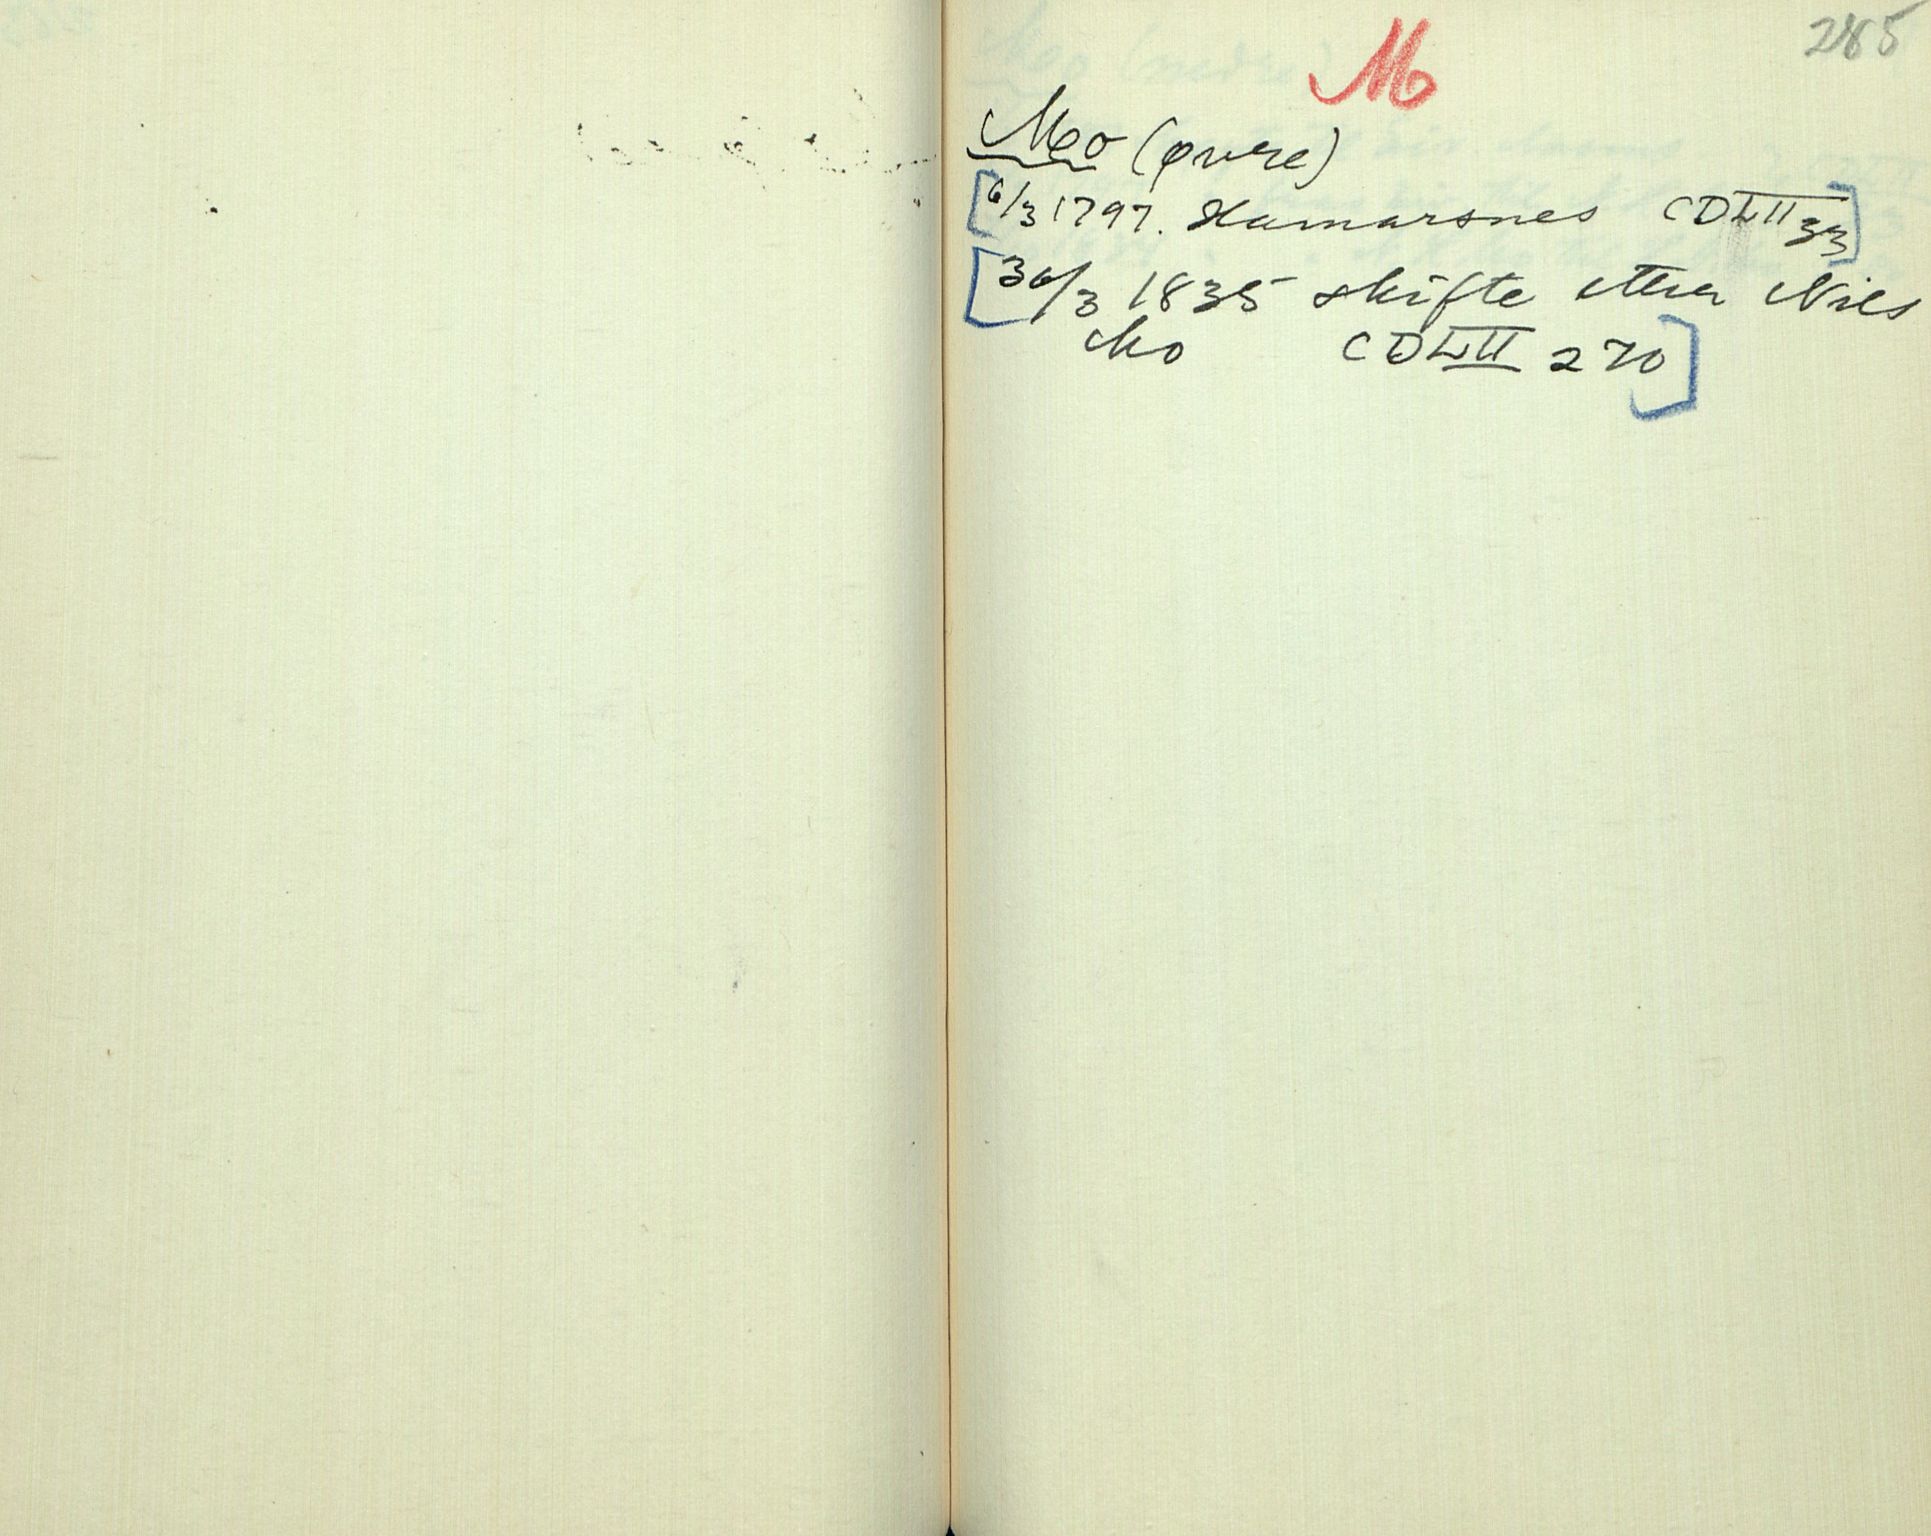 285
M
Moo (øvre)
[6/3 1797. Hamarsnes CDLII 33]
[30/3 1835 skifte etter Nils
Mo CDLII 270]